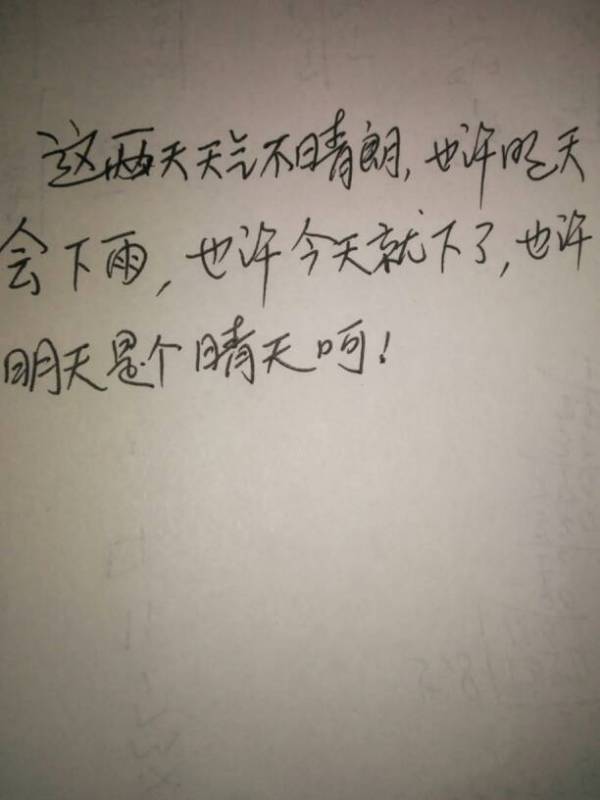 这两天天气不晴朗,也许明天
会下雨,也许今天就下了,也许
明天是个晴天呵!